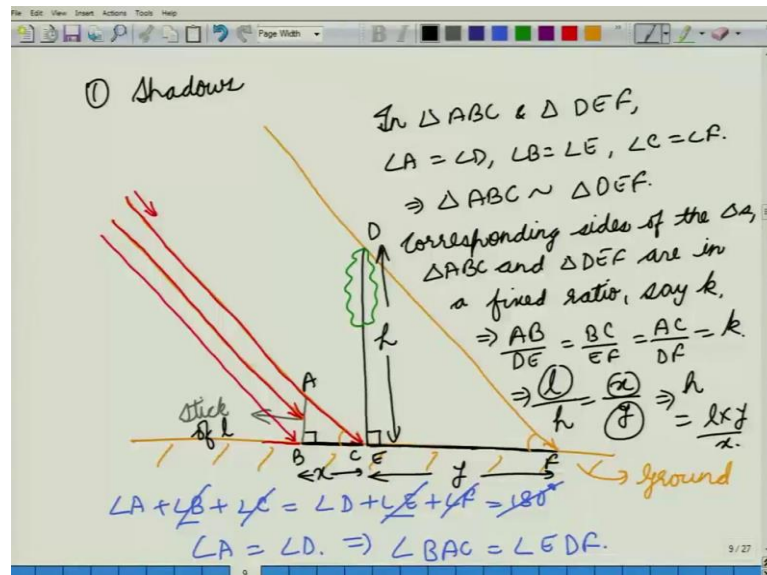 File Edit View Insert Actions Tools Help
Page Width
① Shadows
In △ABC & △DEF,
∠A = ∠D, ∠B = ∠E, ∠C = ∠F.
⇒ △ABC ~ △DEF.
Corresponding sides of the △s,
△ABC and △DEF are in
a fixed ratio, say k,
⇒ AB/DE = BC/EF = AC/DF = k.
⇒ l/h = x/y ⇒ h
= l×y/x.
D
h
A
stick
of l
B C E F
x y
Ground
∠A + ∠B + ∠C = ∠D + ∠E + ∠F = 180°
∠A = ∠D. ⇒ ∠BAC = ∠EDF.
9/27
9